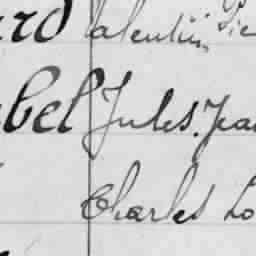 Valentin Pie
bel Jules Jea
Charles Lo